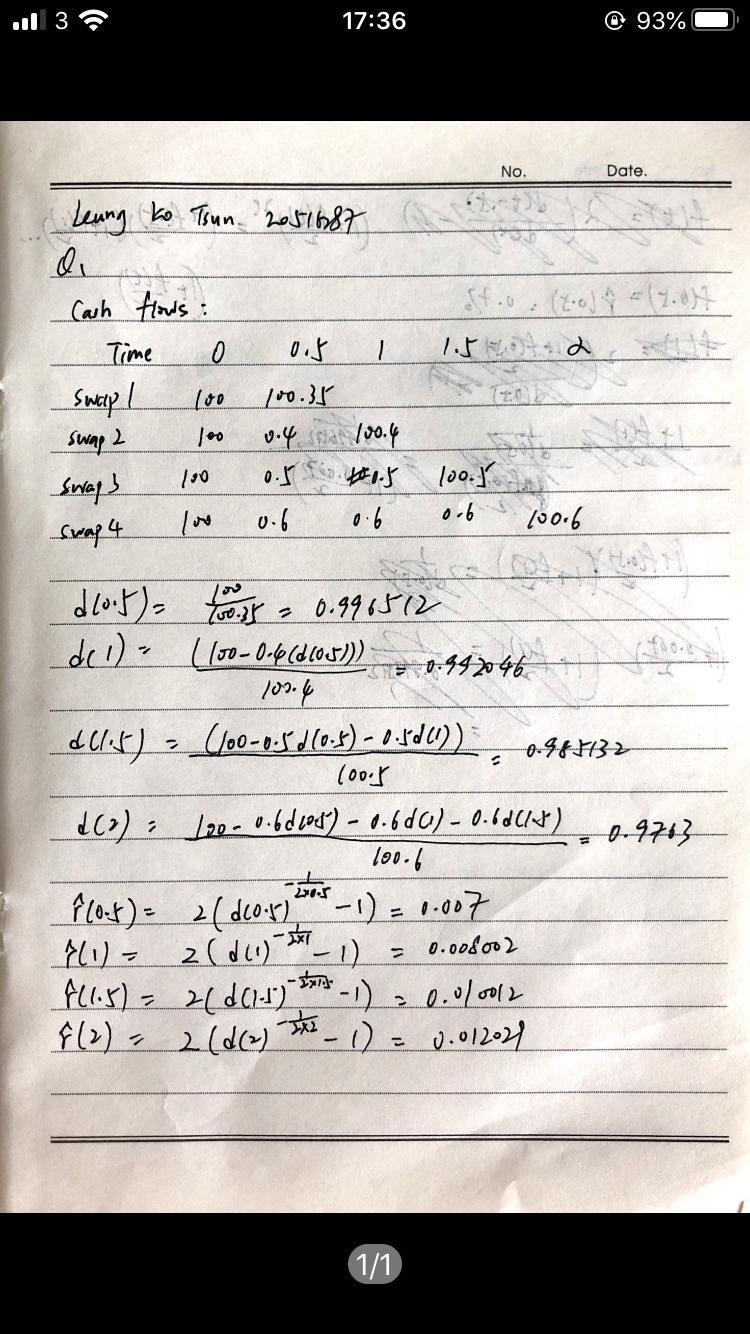 3 17:36 93%
No. Date.
Leung Ko Tsun 20516287
Q1
Cash flows :
Time 0 0.5 1 1.5 2
swap 1 100 100.35
swap 2 100 0.4 100.4
swap 3 100 0.5 0.5 100.5
swap 4 100 0.6 0.6 0.6 100.6
d(0.5) = 100/100.35 = 0.996512
d(1) = (100-0.4(d(0.5)))/100.4 = 0.992046
d(1.5) = (100-0.5d(0.5)-0.5d(1))/100.5 = 0.985132
d(2) = 100-0.6d(0.5)-0.6d(1)-0.6d(1.5)/100.6 = 0.9763
r̂(0.5) = 2(d(0.5)^-1/2×0.5 -1) = 0.007
r̂(1) = 2(d(1)^-1/2×1 -1) = 0.008002
r̂(1.5) = 2(d(1.5)^-1/2×1.5 -1) = 0.010012
r̂(2) = 2(d(2)^-1/2×2 -1) = 0.012029
1/1